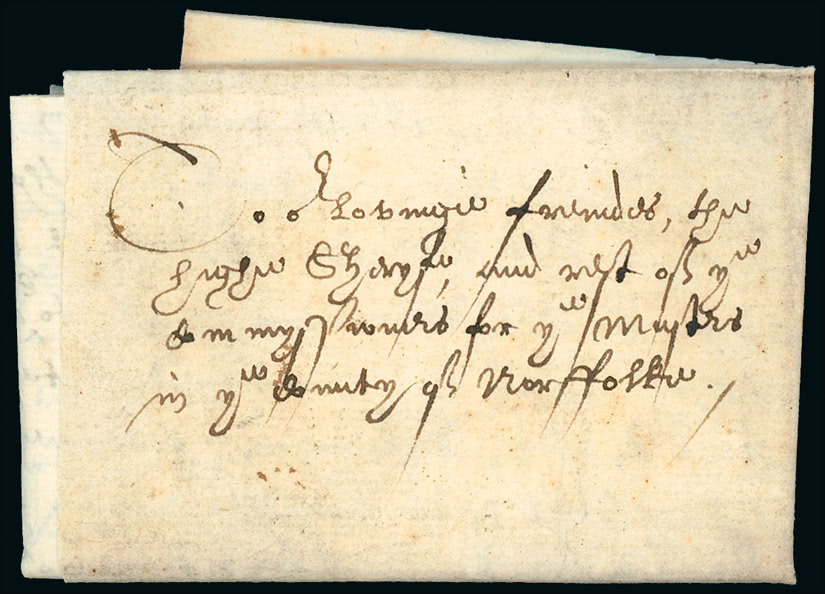 To or lovinge freindes, the
highe Sheryfe, and rest of ye
Commyssioners for ye Musters
in ye County of Norffolke.